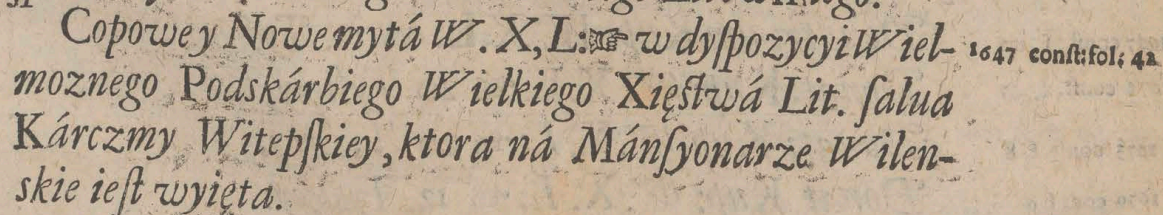 Copowe y Nowe mytá W. X, L:☞ w dyſpozycyi Wiel- 1647 conſt: fol: 42
moznego Podskárbiego Wielkiego Xięſtwá Lit. ſalua
Kárczmy Witepſkiey, ktora ná Mánſyonarze Wilen-
skie ieſt wyięta.